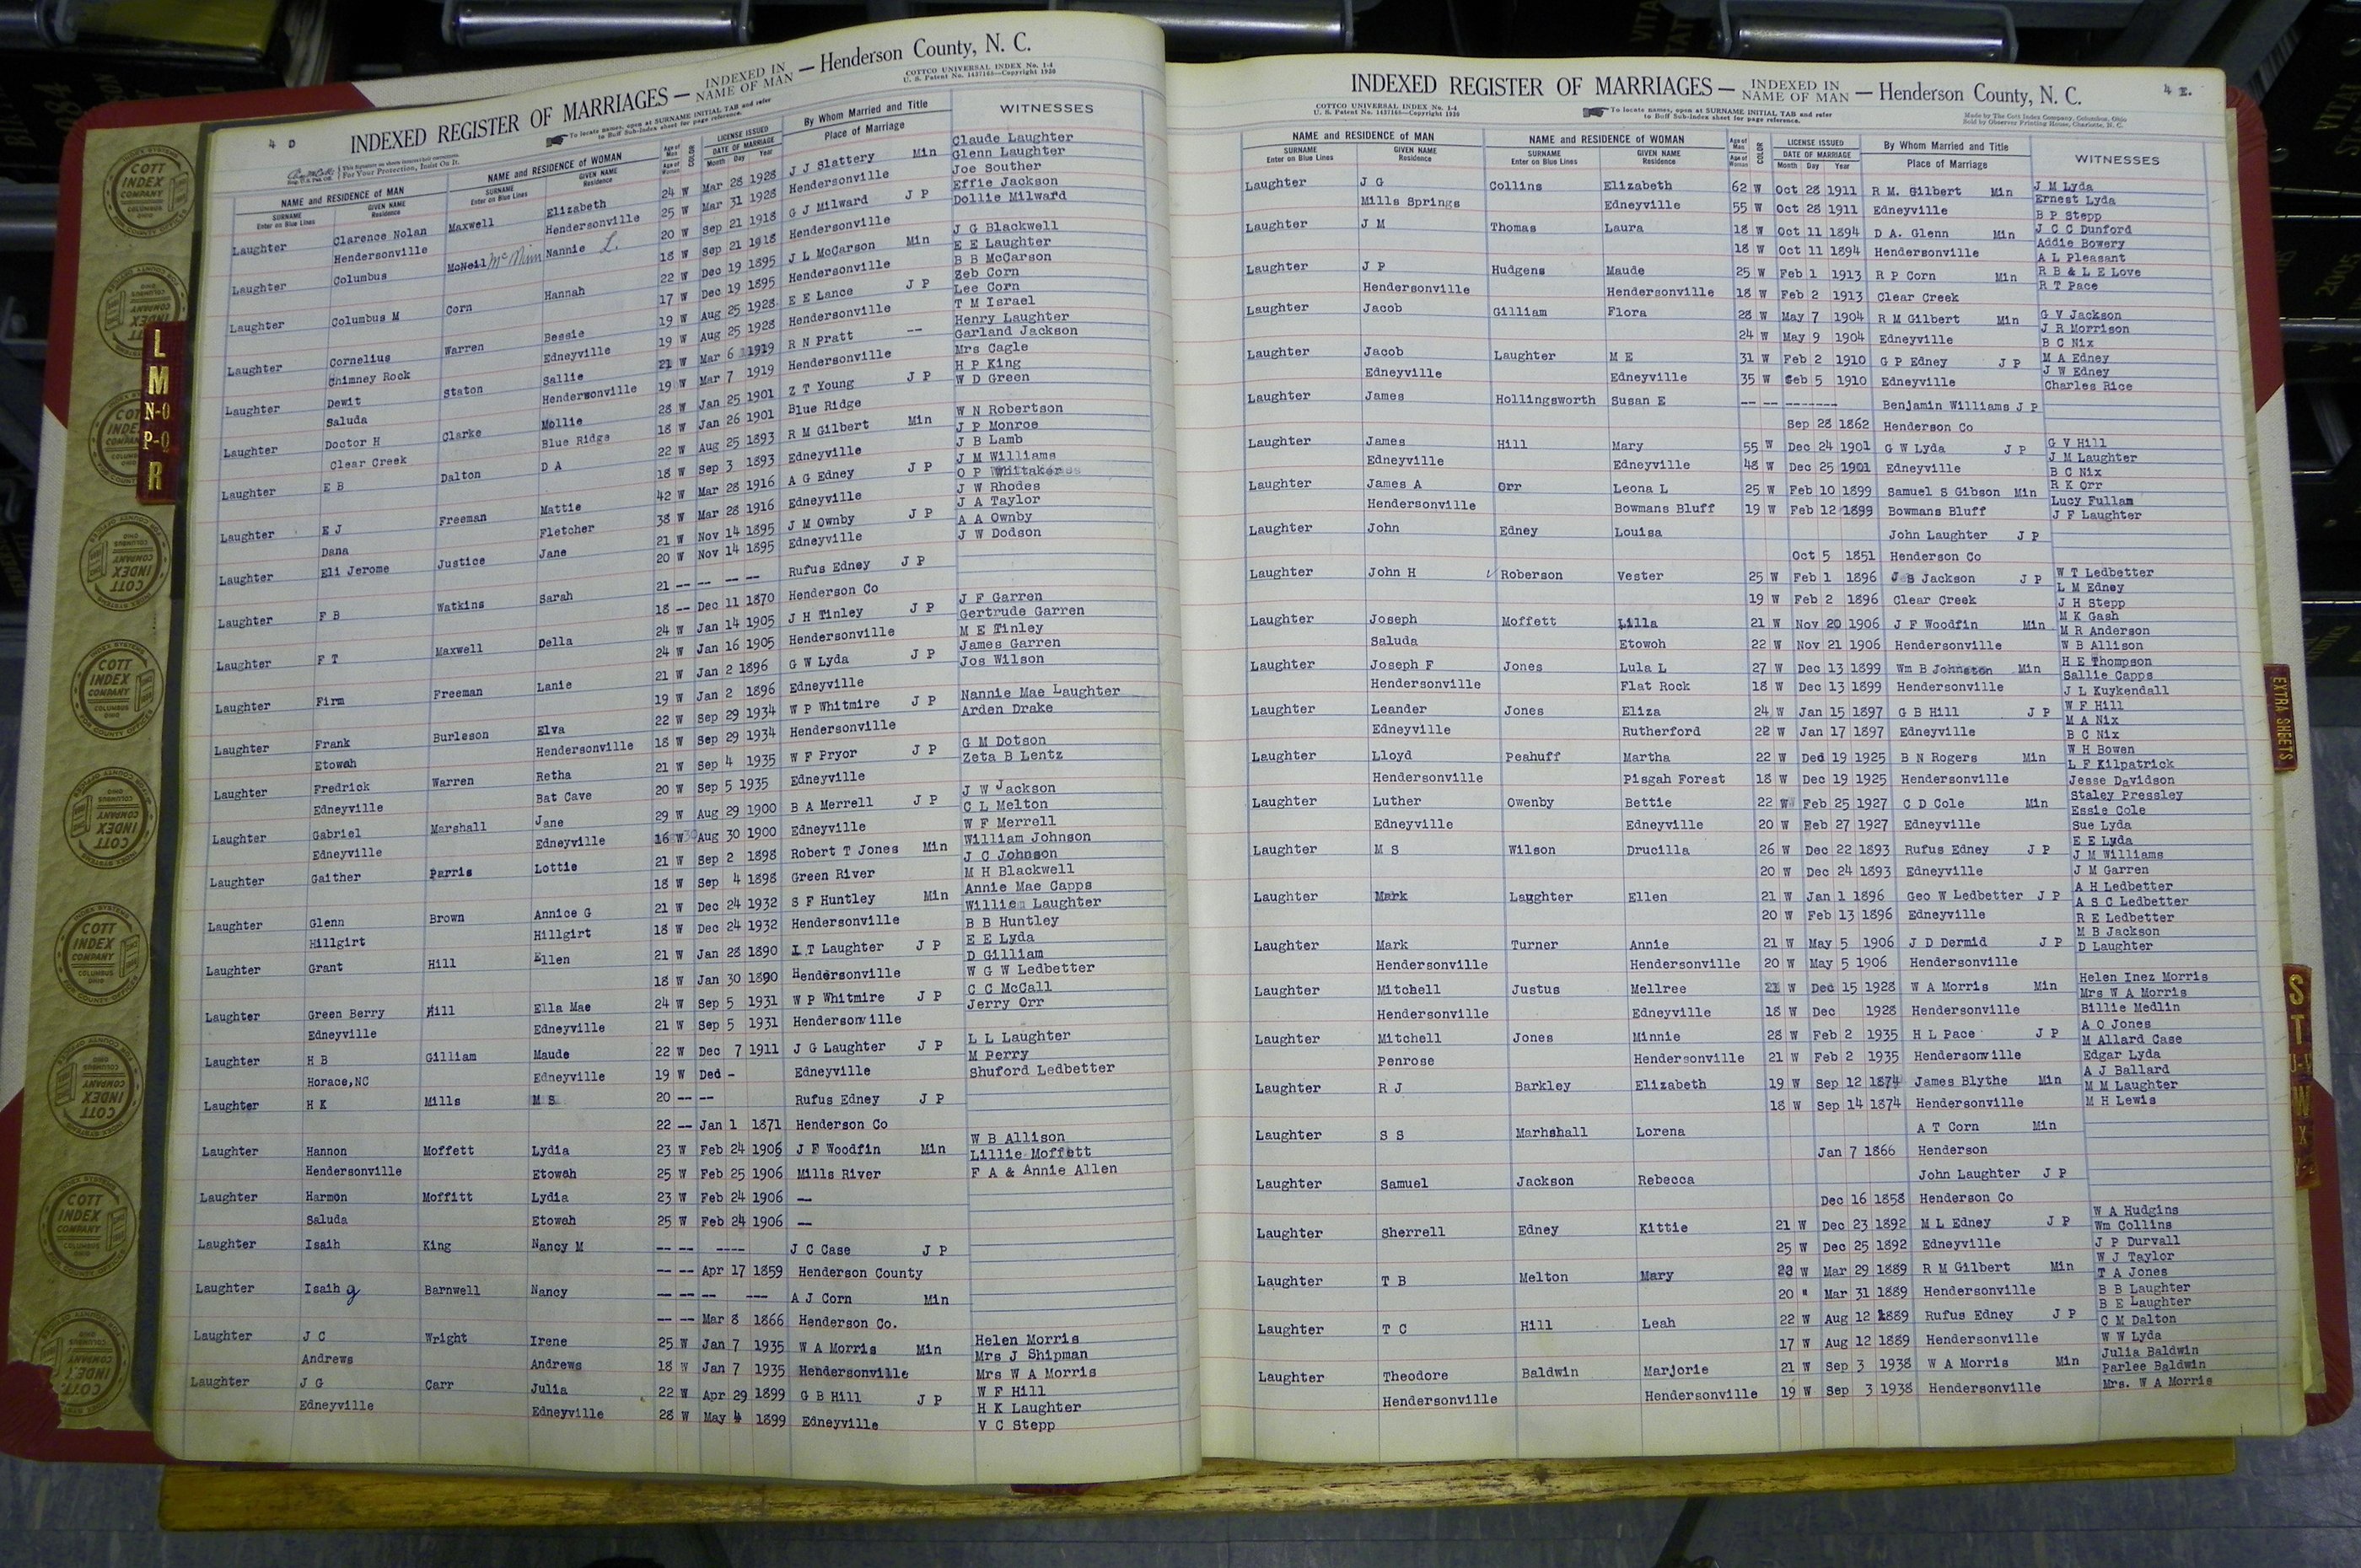 4 D
INDEXED REGISTER OF MARRIAGES — INDEXED IN NAME OF MAN — Henderson County, N. C.
COTTCO UNIVERSAL INDEX No. 1-4
U. S. Patent No. 1437168—Copyright 1920
To locate names, open at SURNAME INITIAL TAB and refer
to Buff Sub-Index sheet for page reference.
For Your Protection, Insist On It.
NAME and RESIDENCE of MAN NAME and RESIDENCE of WOMAN Age of Man COLOR LICENSE ISSUED By Whom Married and Title WITNESSES
SURNAME Enter on Blue Lines GIVEN NAME Residence SURNAME Enter on Blue Lines GIVEN NAME Residence Age of Woman DATE OF MARRIAGE Month Day Year Place of Marriage
Laughter Clarence Nolan Maxwell Elizabeth 24 W Mar 28 1928 J J Slattery Min Claude Laughter
Glenn Laughter
Hendersonville Hendersonville 25 W Mar 31 1928 Hendersonville Joe Souther
Laughter Columbus McNeil McMinn Nannie L. 20 W Sep 21 1918 G J Milward J P Effie Jackson
18 W Sep 21 1918 Hendersonville Dollie Milward
Laughter Columbus M Corn Hannah 22 W Dec 19 1895 J L McCarson Min J G Blackwell
E E Laughter
17 W Dec 19 1895 Hendersonville B B McCarson
Laughter Cornelius Warren Bessie 19 W Aug 25 1928 E E Lance J P Zeb Corn
Lee Corn
Chimney Rock Edneyville 19 W Aug 25 1928 Hendersonville T M Israel
Laughter Dewit Staton Sallie 21 W Mar 6 1919 R N Pratt -- Henry Laughter
Garland Jackson
Saluda Hendersonville 19 W Mar 7 1919 Hendersonville Mrs Cagle
Laughter Doctor H Clarke Mollie 28 W Jan 25 1901 Z T Young J P H P King
Clear Creek Blue Ridge 18 W Jan 26 1901 Blue Ridge W D Green
Laughter E B Dalton D A 22 W Aug 25 1893 R M Gilbert Min W N Robertson
J P Monroe
18 W Sep 3 1893 Edneyville J B Lamb
Laughter E J Freeman Mattie 42 W Mar 28 1916 A G Edney J P J M Williams
O P Whitaker
Dana Fletcher 38 W Mar 28 1916 Edneyville J W Rhodes
Laughter Eli Jerome Justice Jane 21 W Nov 14 1895 J M Ownby J P J A Taylor
A A Ownby
20 W Nov 14 1895 Edneyville J W Dodson
Laughter F B Watkins Sarah 21 -- -- -- -- Rufus Edney J P
18 -- Dec 11 1870 Henderson Co
Laughter F T Maxwell Della 24 W Jan 14 1905 J H Tinley J P J F Garren
Gertrude Garren
24 W Jan 16 1905 Hendersonville M E Tinley
Laughter Firm Freeman Lanie 21 W Jan 2 1896 G W Lyda J P James Garren
19 W Jan 2 1896 Edneyville Jos Wilson
Laughter Frank Burleson Elva 22 W Sep 29 1934 W P Whitmire J P Nannie Mae Laughter
Etowah Hendersonville 18 W Sep 29 1934 Hendersonville Arden Drake
Laughter Fredrick Warren Retha 21 W Sep 4 1935 W F Pryor J P G M Dotson
Edneyville Bat Cave 20 W Sep 5 1935 Edneyville Zeta B Lentz
Laughter Gabriel Marshall Jane 29 W Aug 29 1900 B A Merrell J P J W Jackson
C L Melton
Edneyville Edneyville 16 W 30 Aug 30 1900 Edneyville W F Merrell
Laughter Gaither Parris Lottie 21 W Sep 2 1898 Robert T Jones Min William Johnson
J C Johnson
18 W Sep 4 1898 Green River M H Blackwell
Laughter Glenn Brown Annice G 21 W Dec 24 1932 S F Huntley Min Annie Mae Capps
William Laughter
Hillgirt Hillgirt 18 W Dec 24 1932 Hendersonville B B Huntley
Laughter Grant Hill Ellen 21 W Jan 28 1890 I T Laughter J P E E Lyda
D Gilliam
18 W Jan 30 1890 Hendersonville W G W Ledbetter
Laughter Green Berry Hill Ella Mae 24 W Sep 5 1931 W P Whitmire J P C C McCall
Edneyville Edneyville 21 W Sep 5 1931 Hendersonville Jerry Orr
Laughter H B Gilliam Maude 22 W Dec 7 1911 J G Laughter J P L L Laughter
M Perry
Horace,NC Edneyville 19 W Ded - Edneyville Shuford Ledbetter
Laughter H K Mills M S 20 -- -- Rufus Edney J P
22 -- Jan 1 1871 Henderson Co
Laughter Hannon Moffett Lydia 23 W Feb 24 1906 J F Woodfin Min W B Allison
Lillie Moffett
Hendersonville Etowah 25 W Feb 25 1906 Mills River F A & Annie Allen
Laughter Harmon Moffitt Lydia 23 W Feb 24 1906 --
Saluda Etowah 25 W Feb 24 1906 --
Laughter Isaih King Nancy M -- -- ---- J C Case J P
-- -- Apr 17 1859 Henderson County
Laughter Isaih g Barnwell Nancy -- -- -- --- A J Corn Min
-- -- Mar 8 1866 Henderson Co.
Laughter J C Wright Irene 25 W Jan 7 1935 W A Morris Min Helen Morris
Mrs J Shipman
Andrews Andrews 18 W Jan 7 1935 Hendersonville Mrs W A Morris
Laughter J G Carr Julia 22 W Apr 29 1899 G B Hill J P W F Hill
H K Laughter
Edneyville Edneyville 28 W May 4 1899 Edneyville V C Stepp
4 E.
INDEXED REGISTER OF MARRIAGES — INDEXED IN NAME OF MAN — Henderson County, N. C.
COTTCO UNIVERSAL INDEX No. 1-4
U. S. Patent No. 1437168—Copyright 1920
To locate names, open at SURNAME INITIAL TAB and refer
to Buff Sub-Index sheet for page reference.
Made by The Cott Index Company, Columbus, Ohio
Sold by Observer Printing House, Charlotte, N. C.
NAME and RESIDENCE OF MAN NAME and RESIDENCE OF WOMAN Age of Man COLOR LICENSE ISSUED By Whom Married and Title WITNESSES
SURNAME Enter on Blue Lines GIVEN NAME Residence SURNAME Enter on Blue Lines GIVEN NAME Residence Age of Woman DATE OF MARRIAGE Month Day Year Place of Marriage
Laughter J G Collins Elizabeth 62 W Oct 28 1911 R M. Gilbert Min J M Lyda
Ernest Lyda
Mills Springs Edneyville 55 W Oct 28 1911 Edneyville B P Stepp
Laughter J M Thomas Laura 18 W Oct 11 1894 D A. Glenn Min J C C Dunford
Addie Bowery
18 W Oct 11 1894 Hendersonville A L Pleasant
Laughter J P Hudgens Maude 25 W Feb 1 1913 R P Corn Min R B & L E Love
Hendersonville Hendersonville 18 W Feb 2 1913 Clear Creek R T Pace
Laughter Jacob Gilliam Flora 28 W May 7 1904 R M Gilbert Min G V Jackson
J R Morrison
24 W May 9 1904 Edneyville B C Nix
Laughter Jacob Laughter M E 31 W Feb 2 1910 G P Edney J P M A Edney
J W Edney
Edneyville Edneyville 35 W Seb 5 1910 Edneyville Charles Rice
Laughter James Hollingsworth Susan E -- -- ------- Benjamin Williams J P
Sep 28 1862 Henderson Co
Laughter James Hill Mary 55 W Dec 24 1901 G W Lyda J P G V Hill
J M Laughter
Edneyville Edneyville 48 W Dec 25 1901 Edneyville B C Nix
Laughter James A Orr Leona L 25 W Feb 10 1899 Samuel S Gibson Min R K Orr
Lucy Fullam
Hendersonville Bowmans Bluff 19 W Feb 12 1899 Bowmans Bluff J F Laughter
Laughter John Edney Louisa John Laughter J P
Oct 5 1851 Henderson Co
Laughter John H Roberson Vester 25 W Feb 1 1896 J S Jackson J P W T Ledbetter
L M Edney
19 W Feb 2 1896 Clear Creek J H Stepp
Laughter Joseph Moffett Lilla 21 W Nov 20 1906 J F Woodfin Min M K Gash
M R Anderson
Saluda Etowoh 22 W Nov 21 1906 Hendersonville W B Allison
Laughter Joseph F Jones Lula L 27 W Dec 13 1899 Wm B Johnston Min H E Thompson
Sallie Capps
Hendersonville Flat Rock 18 W Dec 13 1899 Hendersonville J L Kuykendall
Laughter Leander Jones Eliza 24 W Jan 15 1897 G B Hill J P W F Hill
M A Nix
Edneyville Rutherford 22 W Jan 17 1897 Edneyville B C Nix
Laughter Lloyd Peahuff Martha 22 W Ded 19 1925 B N Rogers Min W H Bowen
L F Kilpatrick
Hendersonville Pisgah Forest 18 W Dec 19 1925 Hendersonville Jesse Davidson
Laughter Luther Owenby Bettie 22 W Feb 25 1927 C D Cole Min Staley Pressley
Essie Cole
Edneyville Edneyville 20 W Feb 27 1927 Edneyville Sue Lyda
Laughter M S Wilson Drucilla 26 W Dec 22 1893 Rufus Edney J P E E Lyda
J M Williams
20 W Dec 24 1893 Edneyville J M Garren
Laughter Mark Laughter Ellen 21 W Jan 1 1896 Geo W Ledbetter J P A H Ledbetter
A S C Ledbetter
20 W Feb 13 1896 Edneyville R E Ledbetter
Laughter Mark Turner Annie 21 W May 5 1906 J D Dermid J P M B Jackson
D Laughter
Hendersonville Hendersonville 20 W May 5 1906 Hendersonville
Laughter Mitchell Justus Mellree 21 W Dec 15 1928 W A Morris Min Helen Inez Morris
Mrs W A Morris
Hendersonville Edneyville 18 W Dec 1928 Hendersonville Billie Medlin
Laughter Mitchell Jones Minnie 28 W Feb 2 1935 H L Pace J P A O Jones
M Allard Case
Penrose Hendersonville 21 W Feb 2 1935 Hendersonville Edgar Lyda
Laughter R J Barkley Elizabeth 19 W Sep 12 1874 James Blythe Min A J Ballard
M M Laughter
18 W Sep 14 1874 Hendersonville M H Lewis
Laughter S S Marhshall Lorena A T Corn Min
Jan 7 1866 Henderson
Laughter Samuel Jackson Rebecca John Laughter J P
Dec 16 1858 Henderson Co
Laughter Sherrell Edney Kittie 21 W Dec 23 1892 M L Edney J P W A Hudgins
Wm Collins
25 W Dec 25 1892 Edneyville J P Durvall
Laughter T B Melton Mary W Mar 29 1889 R M Gilbert Min W J Taylor
T A Jones
20 " Mar 31 1889 Hendersonville B B Laughter
Laughter T C Hill Leah 22 W Aug 12 1889 Rufus Edney J P B E Laughter
C M Dalton
17 W Aug 12 1889 Hendersonville W W Lyda
Laughter Theodore Baldwin Marjorie 21 W Sep 3 1938 W A Morris Min Julia Baldwin
Parlee Baldwin
Hendersonville Hendersonville 19 W Sep 3 1938 Hendersonville Mrs. W A Morris
L
M
N-O
P-Q
R
EXTRA SHEETS
S
T
U-V
W
COTT INDEX COMPANY COLUMBUS OHIO
INDEX SYSTEMS FOR COUNTY OFFICES